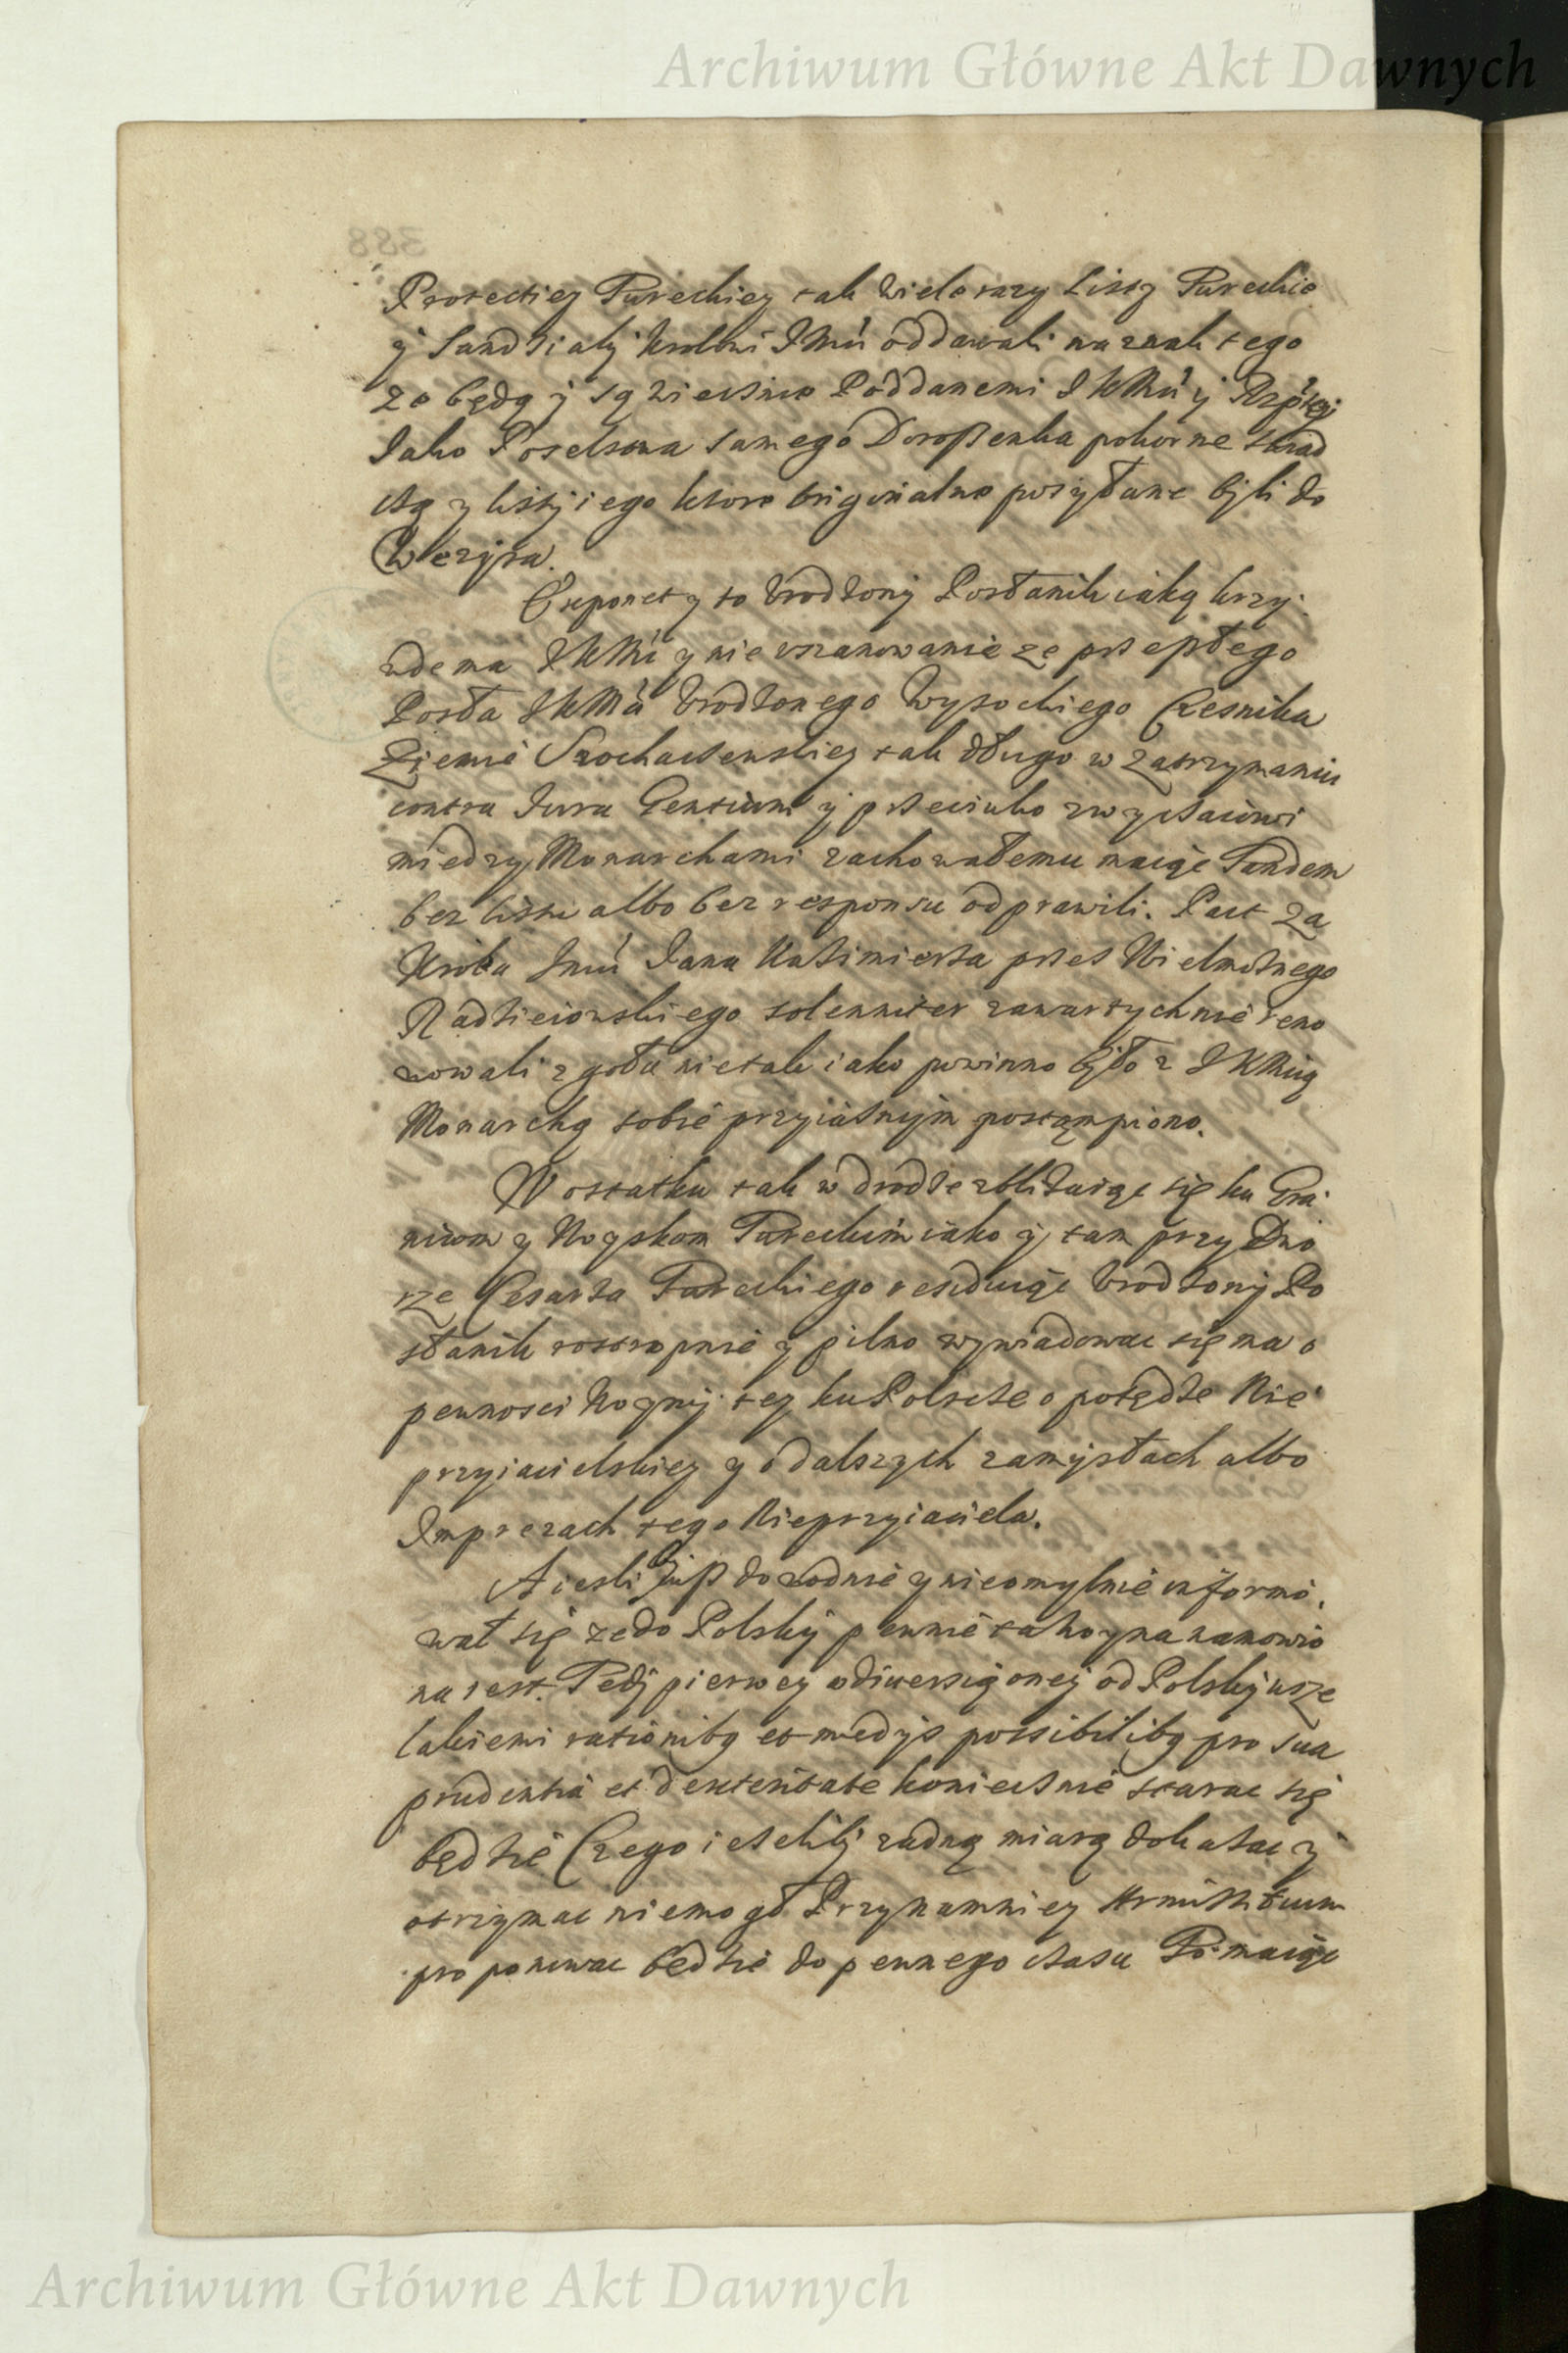 Archiwum Główne Akt Dawnych
388
Protectiey Tureckiey tak wiele razy Listy Tureckie
y Sandziaky Krolowi JMci oddawali na znak tego
ze będą y są wiecznie Poddanemi JKMci y Rzptey
Jako Poselstwa samego Doroszenka pokorne swiad
czą y listy iego ktore originalne posyłane byli do
Wezyra.
Exponet y to Urodzony Posłanik iaką krzy
wde ma JKMc y nie uszanowanie ze przeszłego
Posła JKMci Urodzonego Wysockiego Czesnika
Ziemie Sochaczewskiey tak długo w zatrzymaniu
contra Jura Gentium y przeciwko zwyczaiowi
miedzy Monarchami zachowałemu maiąc Tandem
bez listu albo bez responsu odprawili. Pact za
Krola Jmci Jana Kazimierza przez Wielmoznego
Radzieiowskiego solenniter zawartych nie reno
wowali zgoła nie tak iako powinno było z JKMcią
Monarchą sobie przyiaznym postąmpiono.
W ostatku tak w drodze zblizaiąc się ku Gra
nicom y Woyskom Tureckim iako y tam przy Dwo
rze Cesarza Tureckiego residuiąc Urodzony Po
słanik rostropnie y pilno wywiadowac się ma o
pewnosci Woyny tey ku Polscze o potędze Nie
przyiacielskiey y o dalszych zamysłach albo
Imprezach tego Nieprzyiaciela.
A iesli iusz dowodnie y nieomylnie informo
wał się ze do Polsky pewnie ta woyna nanowio
na iest. Tedy pierwey o diversią oney od Polsky wsze
lakiemi rationibq et medijs possibilibq pro sua
prudentia et dexteritate koniecznie starac się
będzie Czego iezeliby zadną miarą dokazac y
otrzymac niemogł Przynamniey Armistitium
proponowac będzie do pewnego czasu Po maiąc
Archiwum Główne Akt Dawnych